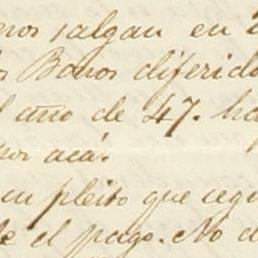 salgan en
Bonos diferido
año de 47. ha
por acá.
un pleito que segu
de el pago. No d